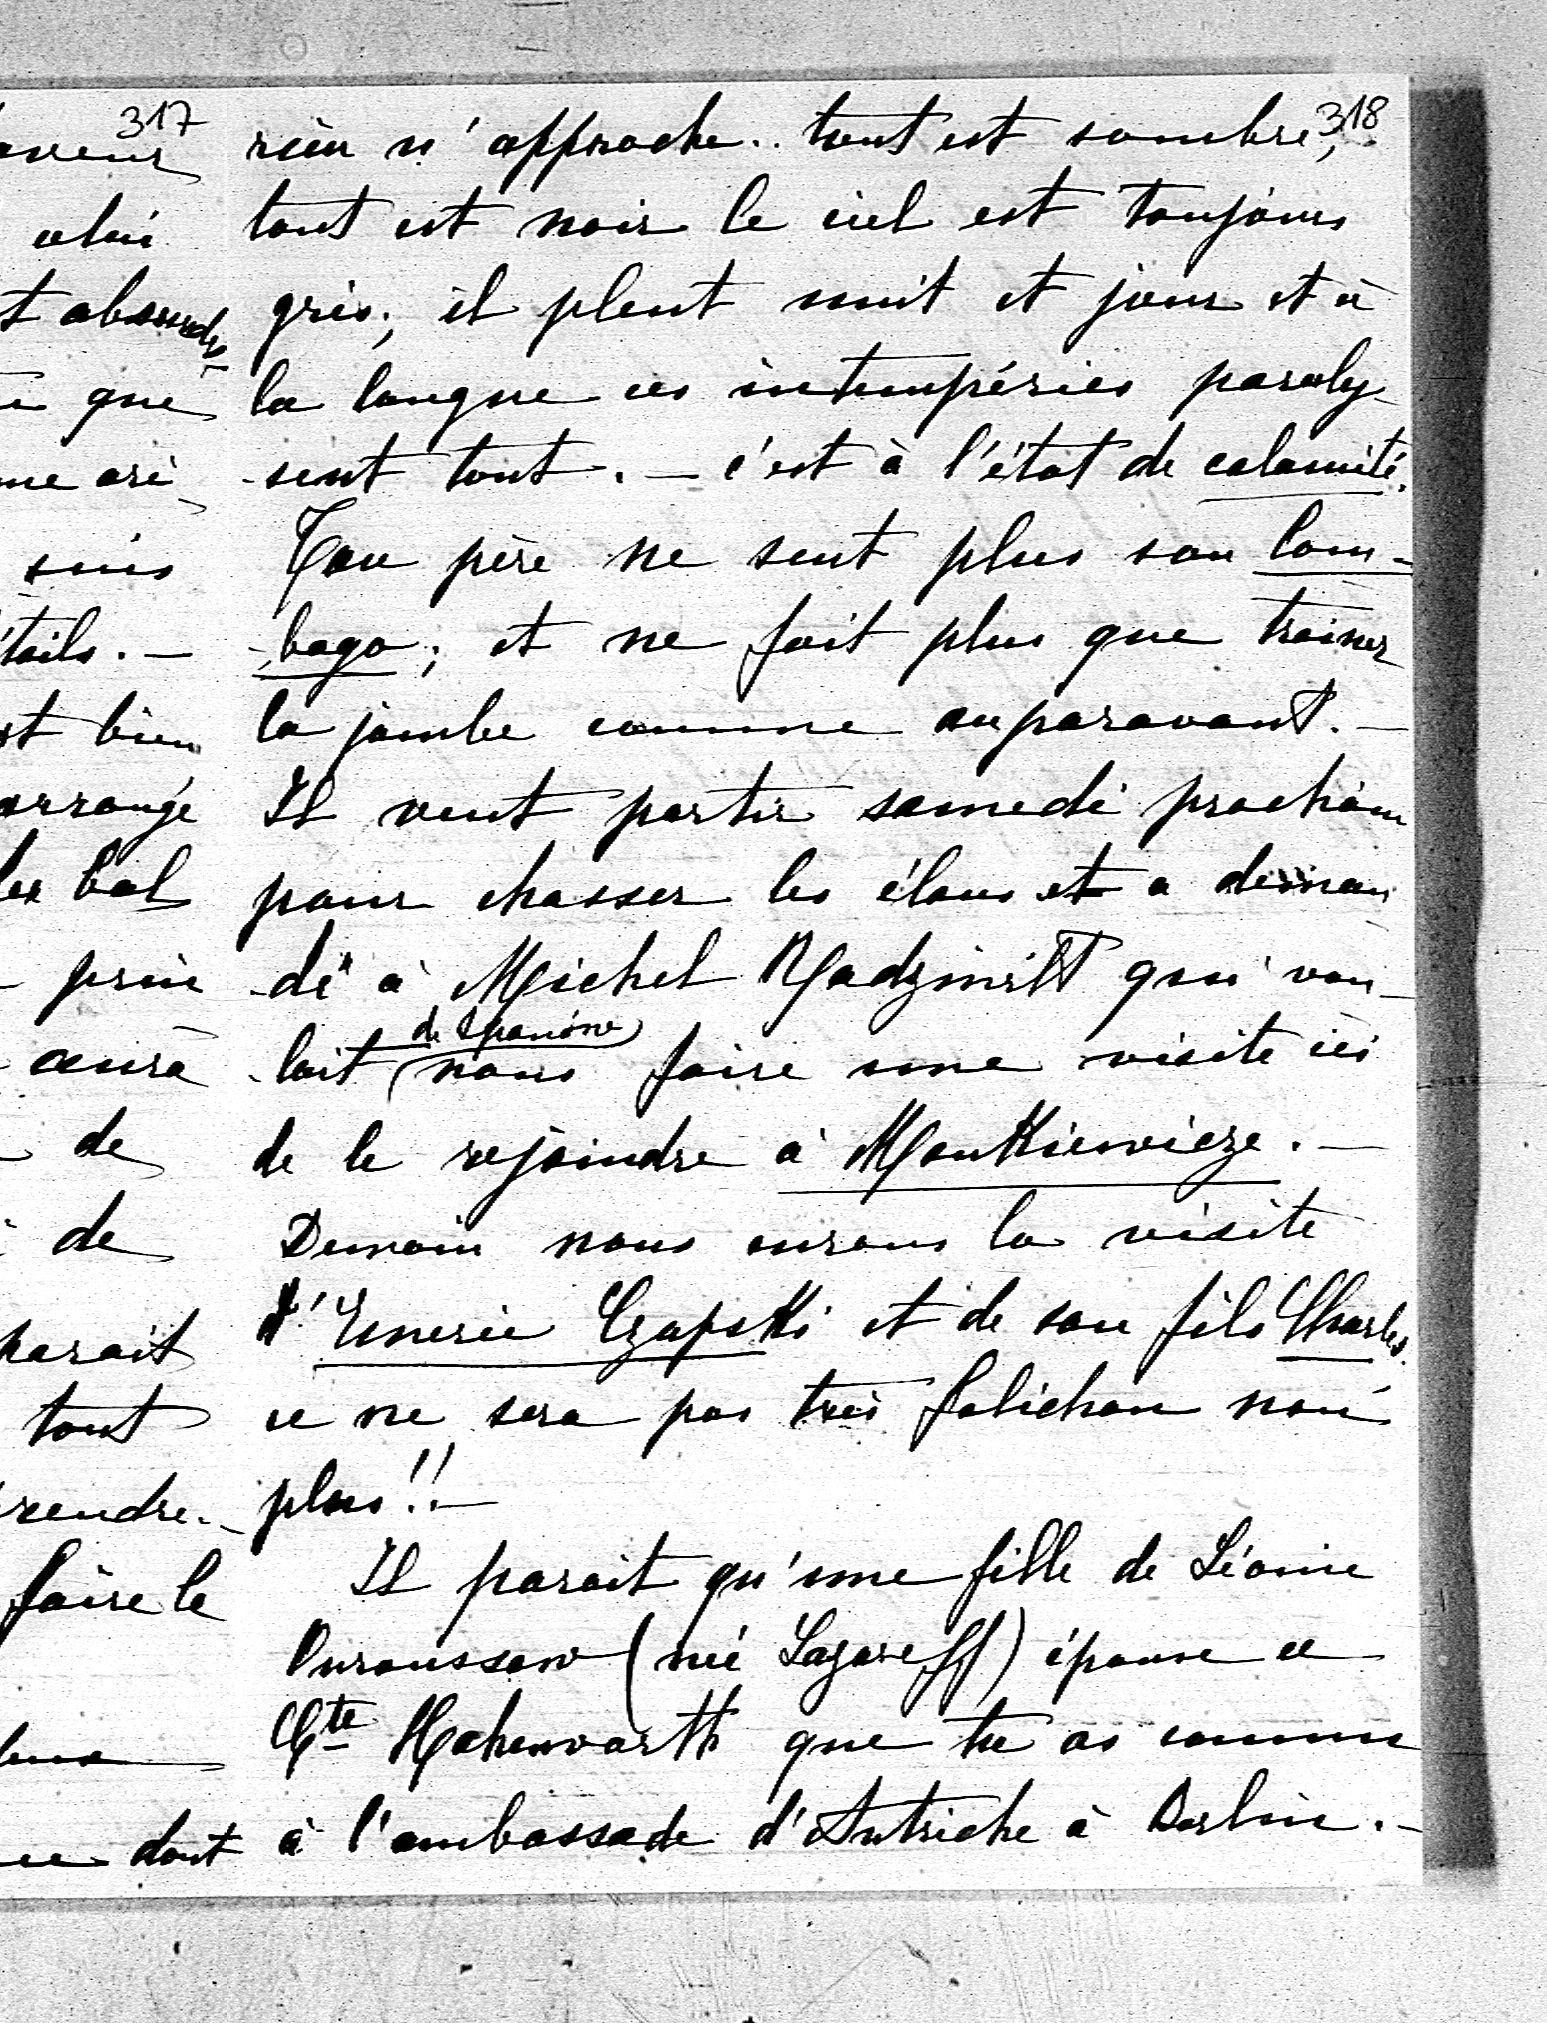 317
celui
t absurde
que
suis
tails. —
st bien
arrangé
bal
de
de
parait
tout
rendre. —
faire le
dont
318
rien n'approche.. tout est sombre,
tout est noir le ciel est toujours
gris; il pleut nuit et jour et à
la longue ces intempéries paraly-
-sent tout. — c'est à l'état de calamité.
Ton père ne sent plus son lom-
-bago; et ne fait plus que trainer
la jambe comme auparavant. —
Il veut partir samedi prochain
pour chasser les élans et a deman
-dé à Michel Radziwill qui vou-
de Spanow
-lait nous faire une visite ici
de le rejoindre à Mankiewicze. —
Demain nous aurons la visite
d'Emeric Czapski et de son fils Charles.
ce ne sera pas très folichon non
plus!! —
Il parait qu'une fille de Léonie
Ouroussow (née Lazareff) épouse ce
Cte Hohenwarth que tu as connu
à l'ambassade d'Autriche à Berlin. —